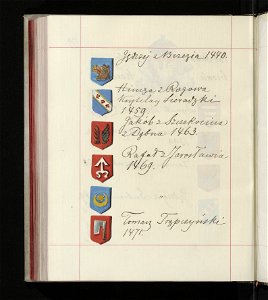 Jędrzej z Brzezia 1440.
Hincza z Rogowa
Kasztelan Sieradzki
1459.
Jakób z Szczekocina
z Dębna 1463.
Rafał z Jarosławia
1469.
Tomasz Trąpczyński
1471.